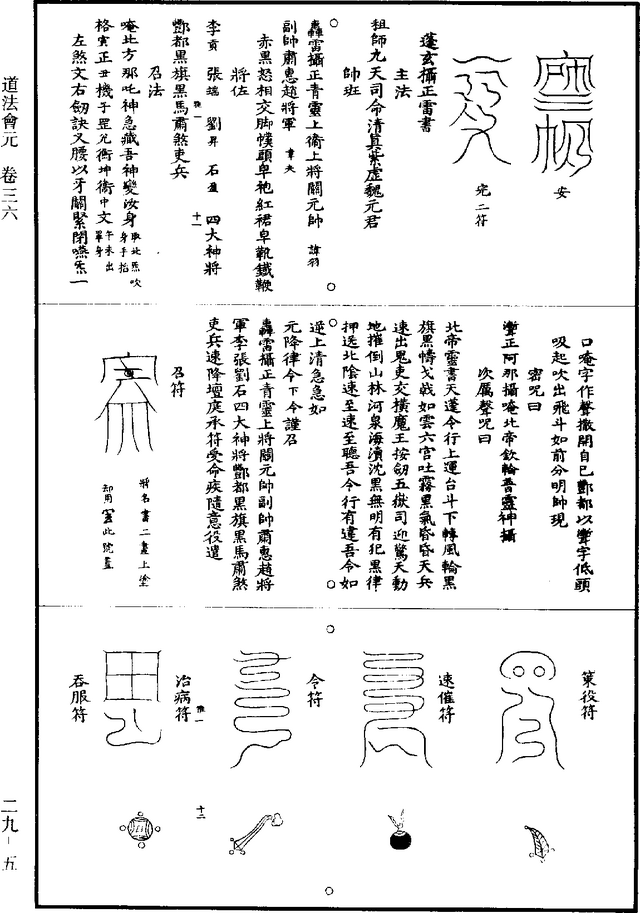 道法會元 卷三六
安
完二符
蓬玄攝正雷書
主法
祖師九天司命清真紫虛魏元君
帥班
轟雷攝正青靈上衛上將關元帥 諱羽
副帥蕭惠趙將軍
赤黑怒相交脚幞頭皁袍紅裙皁靴鐵鞭
將佐
李貢 張端 劉昇 石盈 四大神將
酆都黑旗黑馬肅煞吏兵
召法
唵北方那吒神急藏吾神變汝身 取北炁吹身手掐
格寅正丑機子罡兀衙坤衛中文 午未出罩身
左煞文右劒訣叉腰以牙關緊閉嚥炁一
口唵字作聲撒開自已酆都以灣字低頭
吸起吹出飛斗如前分明帥現
密咒曰
灣正阿那攝唵北帝欽輪普靈神攝
次厲聲咒曰
北帝靈書天蓬令行上運台斗下轉風輪黑
旗黑幬戈戟如雲六宮吐霧黑氣昏昏天兵
速出鬼吏交橫魔王按劒五嶽司迎驚天動
地摧倒山林河泉海瀆沈黑無明有犯黑律
押送北陰速至速至聽吾令行有違吾令如
逆上清急急如
元降律令下令謹召
轟雷攝正青靈上將關元帥副帥肅惠趙將
軍李張劉石四大神將酆都黑旗黑馬肅煞
吏兵速降壇庭承符受命疾隨意役遣
召符
將名書二畫上塗
却用靈此號蓋
策役符
速催符
令符
治病符
吞服符
二九-五